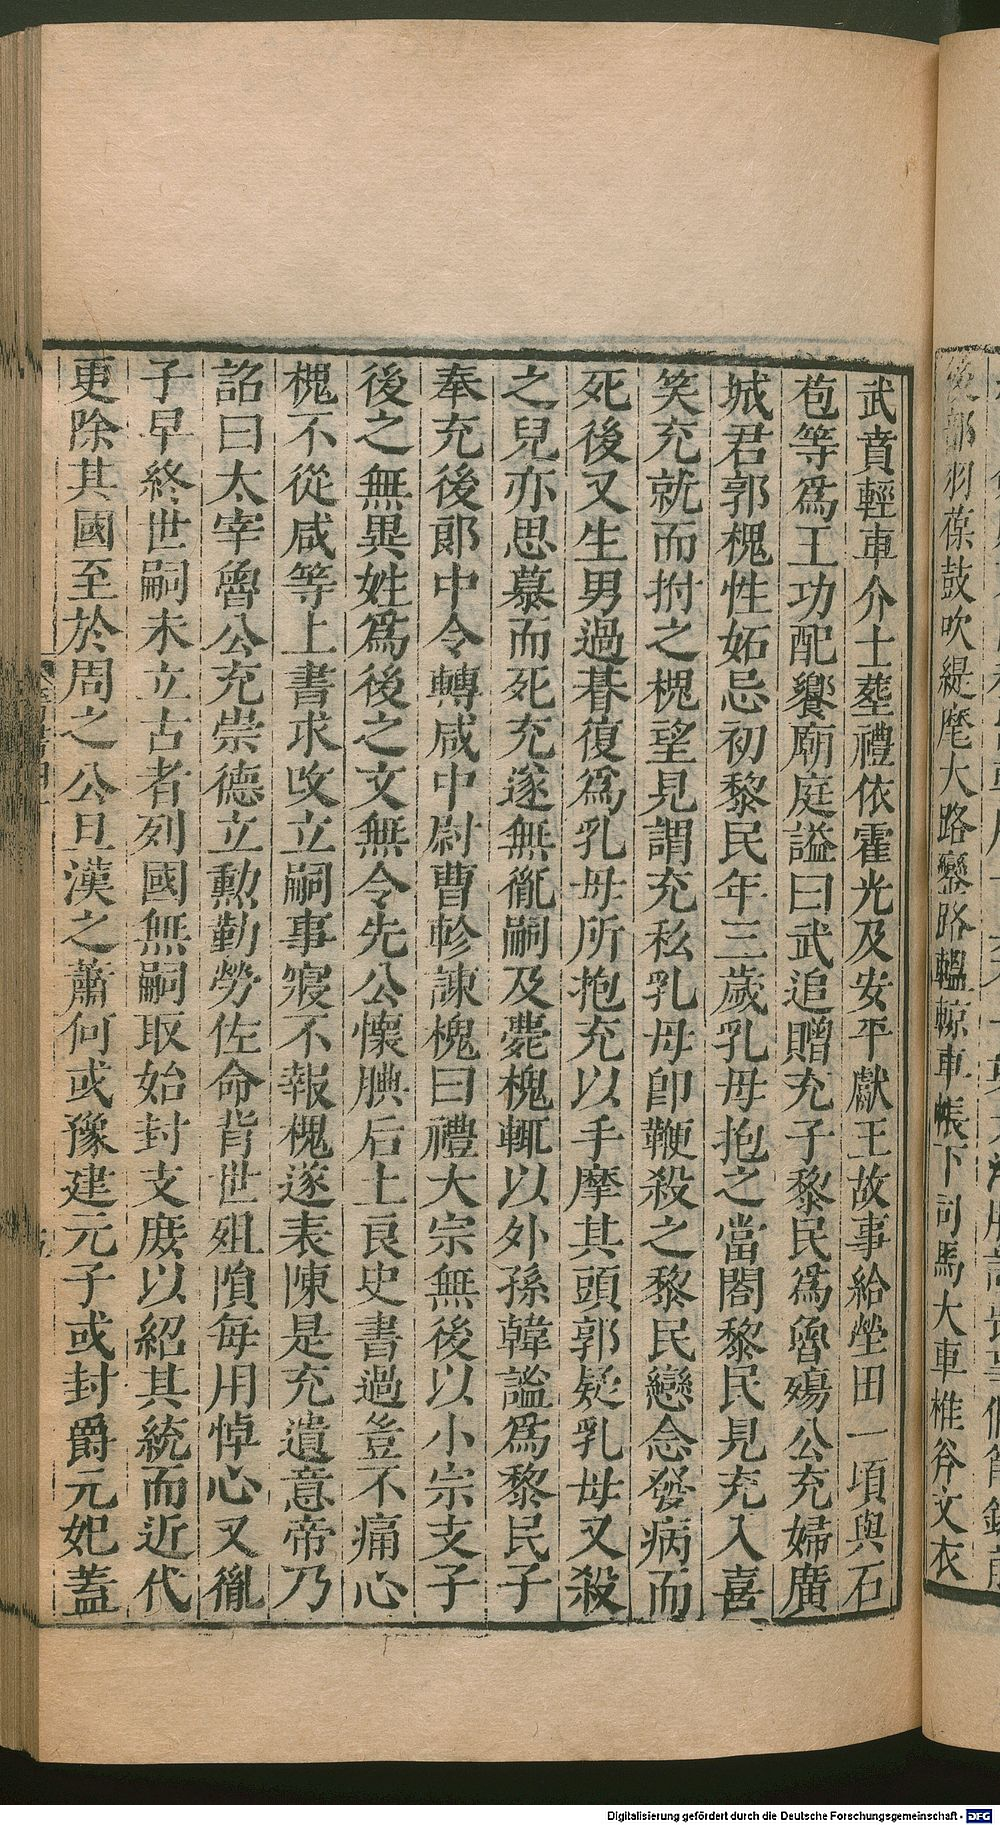 後部羽葆鼓吹緹麾大路鑾路轀輬車帳下司馬大車椎斧文衣
武賁輕車介士葬禮依霍光及安平獻王故事給塋田一頃與石
苞等爲王功配饗廟庭謚曰武追贈充子黎民爲魯殤公充婦廣
城君郭槐性妬忌初黎民年三歲乳母抱之當閤黎民見充入喜
笑充就而拊之槐望見謂充私乳母卽鞭殺之黎民戀念發病而
死後又生男過朞復爲乳母所抱充以手摩其頭郭疑乳母又殺
之兒亦思慕而死充遂無胤嗣及薨槐輒以外孫韓謐爲黎民子
奉充後郎中令轉咸中尉曹軫諫槐曰禮大宗無後以小宗支子
後之無異姓爲後之文無令先公懷腆后土良史書過豈不痛心
槐不從咸等上書求攺立嗣事寢不報槐遂表陳是充遺意帝乃
詔曰太宰魯公充崇德立勳勤勞佐命背世殂隕每用悼心又胤
子早終世嗣未立古者列國無嗣取始封支庶以紹其統而近代
更除其國至於周之公旦漢之蕭何或豫建元子或封爵元妃蓋
Digitalisierung gefördert durch die Deutsche Forschungsgemeinschaft - DFG